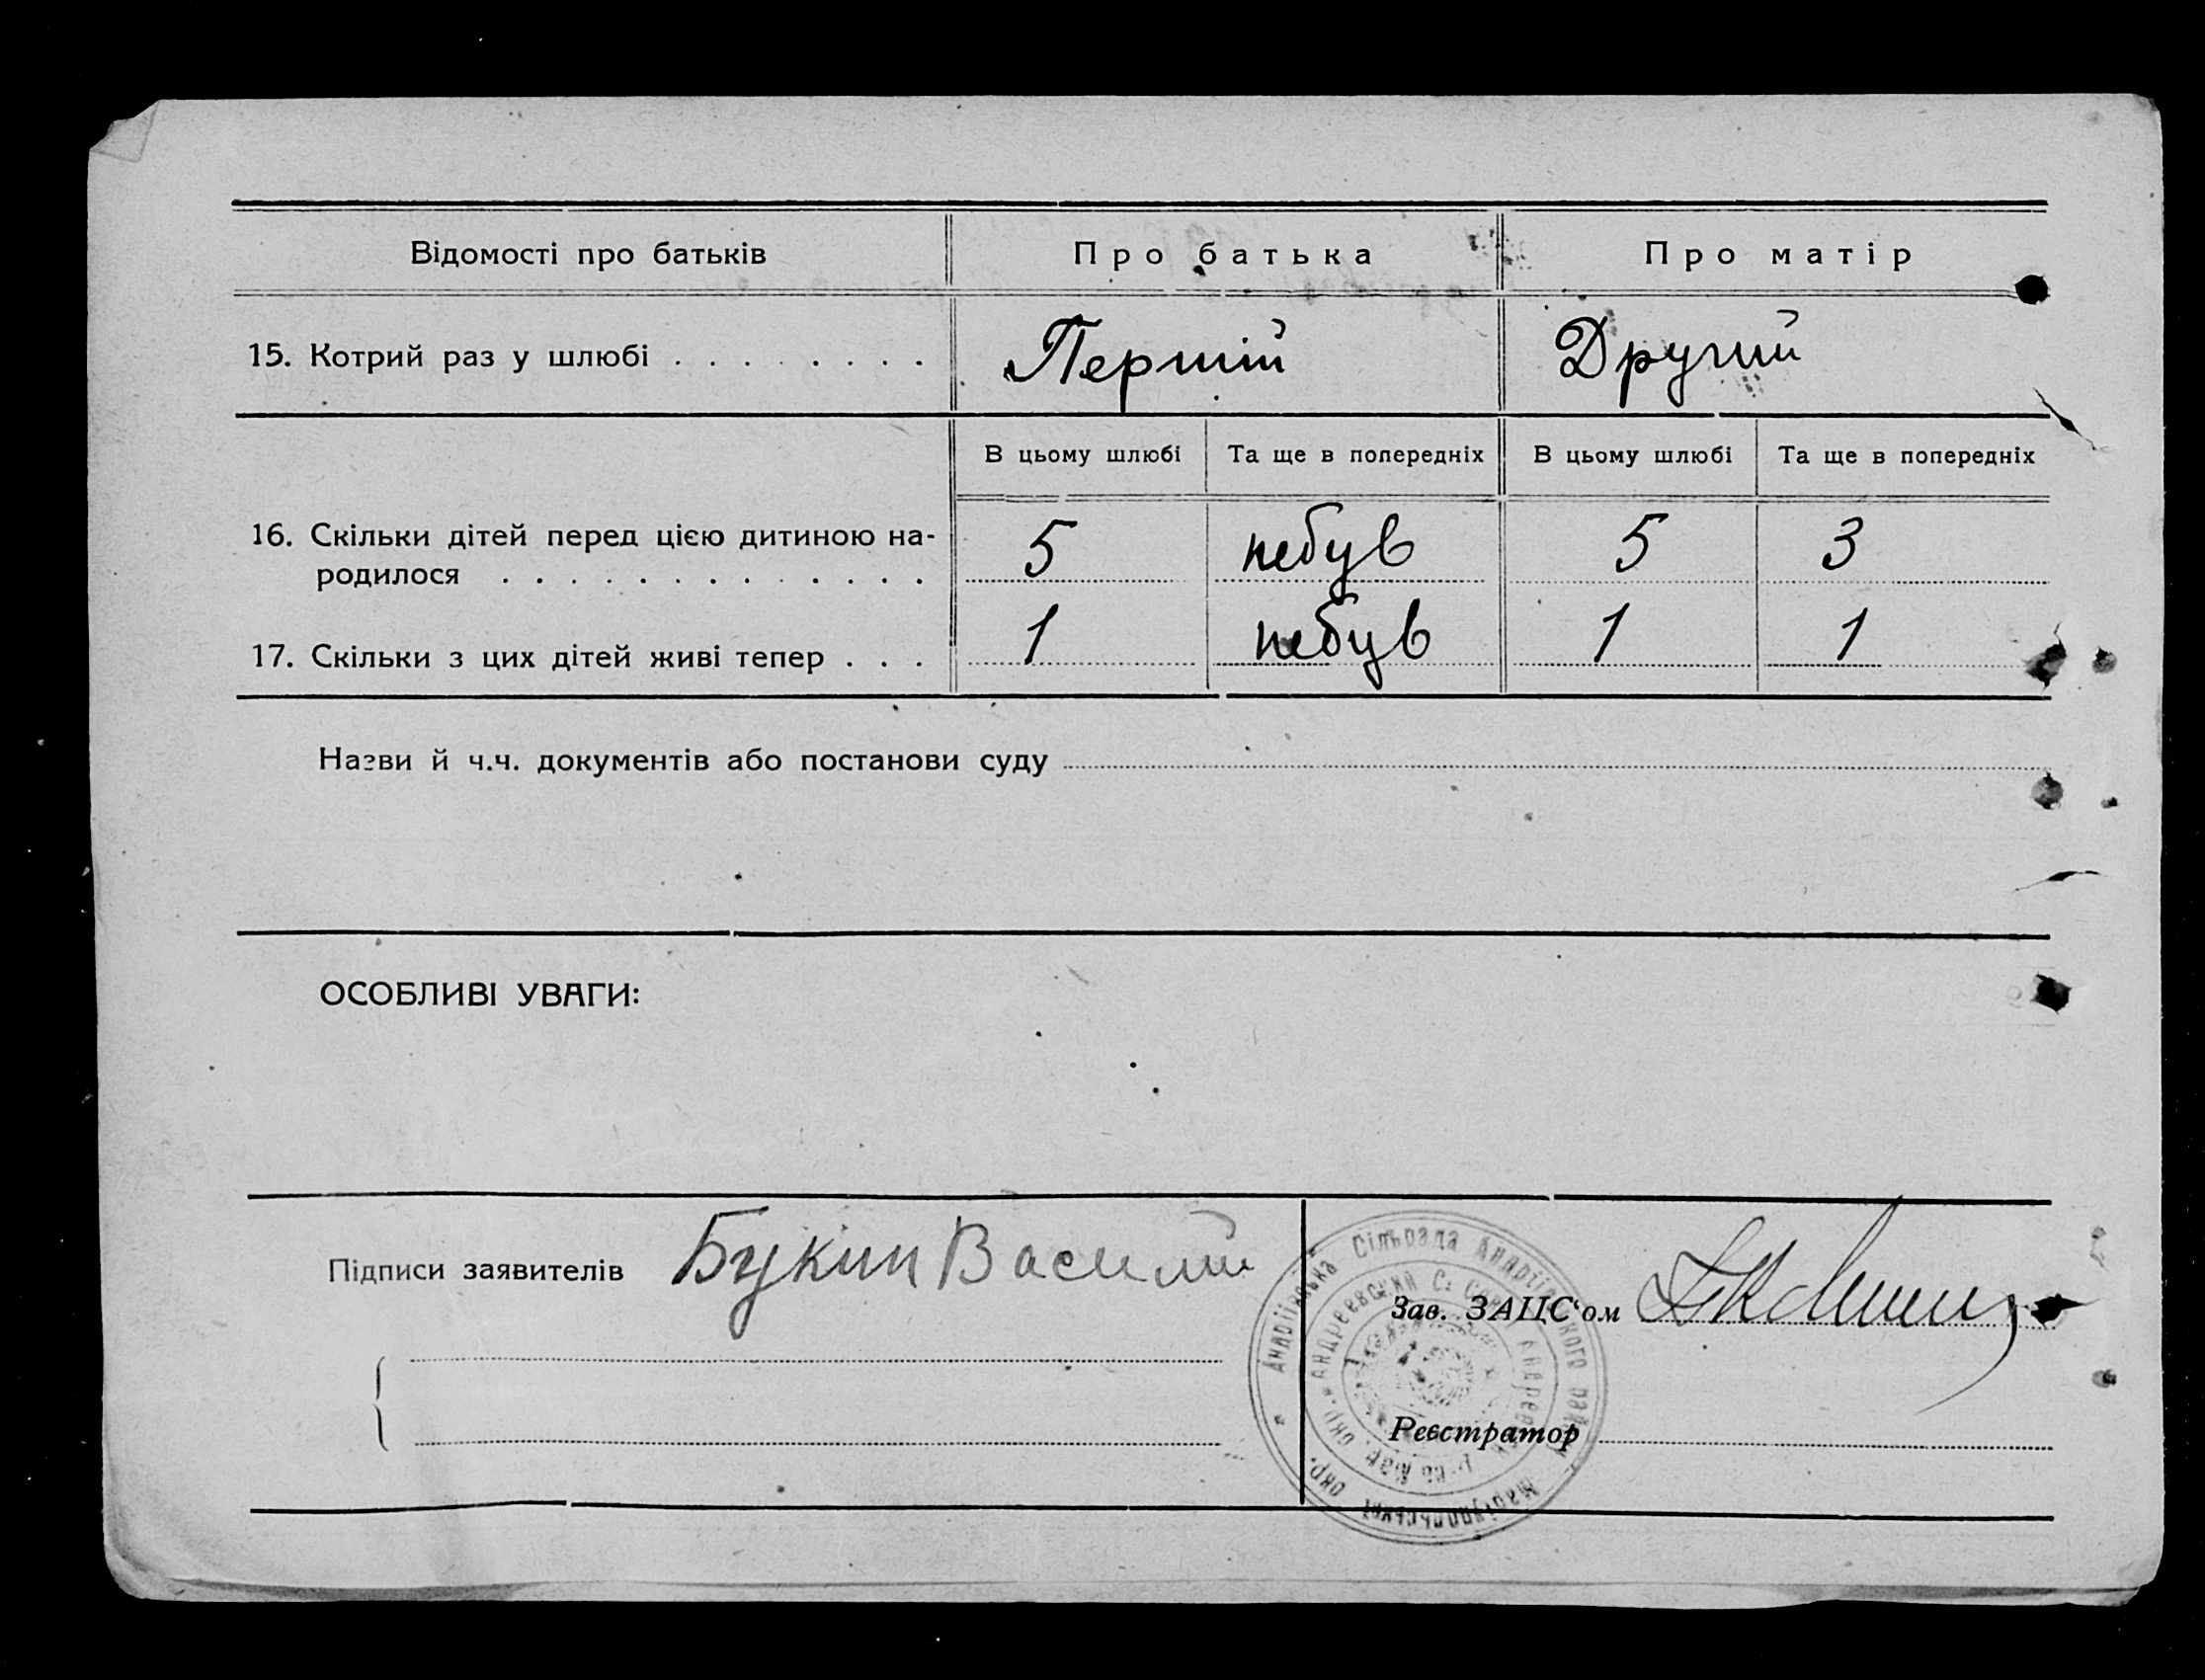 Відомості про батьків
Про батька
Про матір
15. Котрий раз у шлюбі . . . . . . . .
Першій
Другий
В цьому шлюбі
Та ще в попередніх
В цьому шлюбі
Та ще в попередніх
16. Скільки дітей перед цією дитиною на-
родилося . . . . . . . . . . . . .
5
небув
5
3
17. Скільки з цих дітей живі тепер . . .
1
небув
1
1
Назви й ч.ч. документів або постанови суду
ОСОБЛИВІ УВАГИ:
Підписи заявителів
Букин Василий
Зав. ЗАЦС'ом
Реєстратор
Андріївська Сільрада Андріївського району Маріупольської окр.